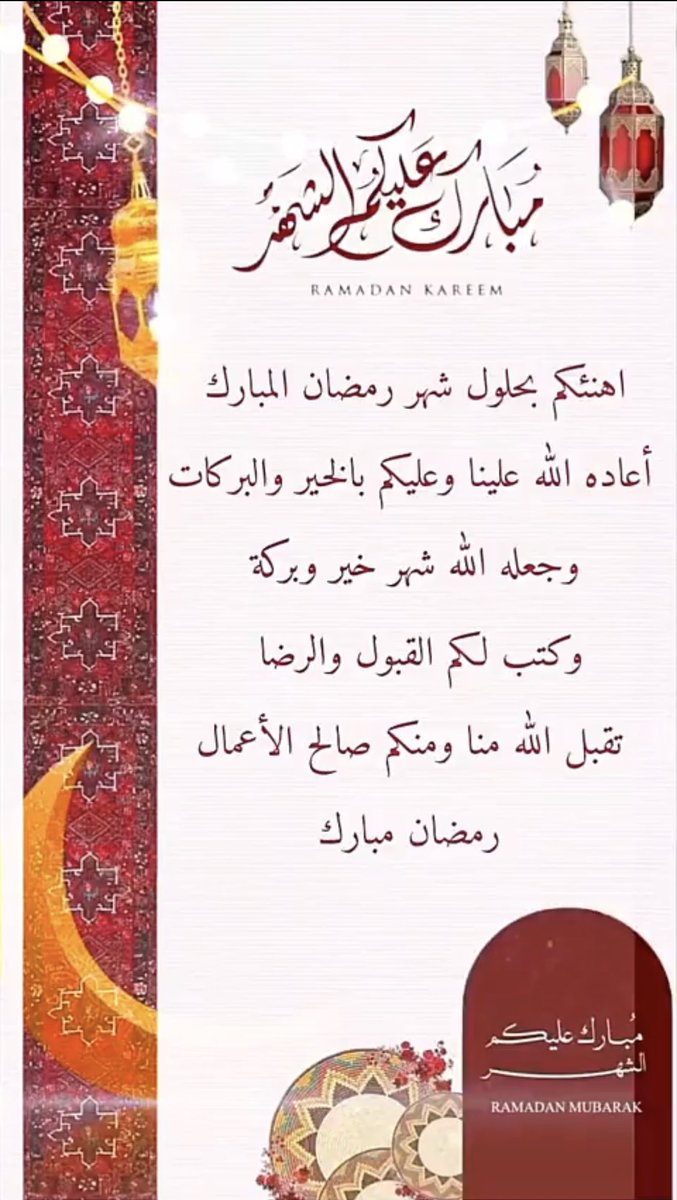 مُبَارَك عَلَيكُم الشَهَر
RAMADAN KAREEM
اهنئكم بحلول شهر رمضان المبارك
أعاده الله علينا وعليكم بالخير والبركات
وجعله الله شهر خير وبركة
وكتب لكم القبول والرضا
تقبل الله منا ومنكم صالح الأعمال
رمضان مبارك
مُبارك عليكم
الشهر
RAMADAN MUBARAK